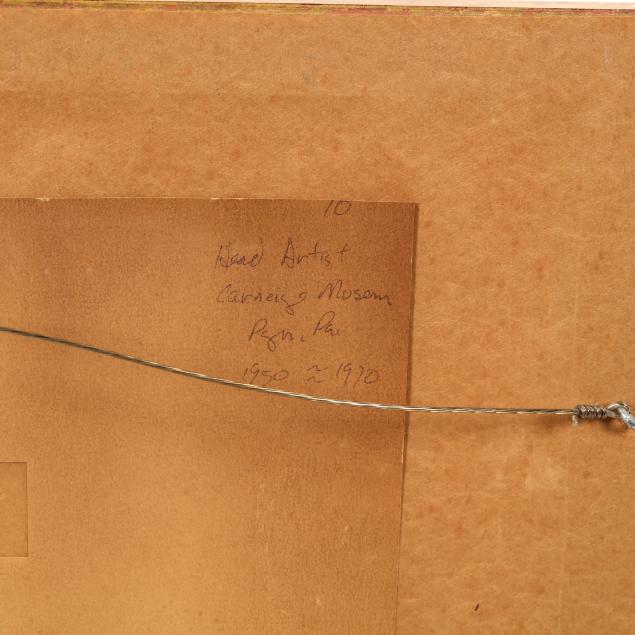 10
Head Artist
Carneige Musem
Pgn, Pa
1950 ≈ 1970